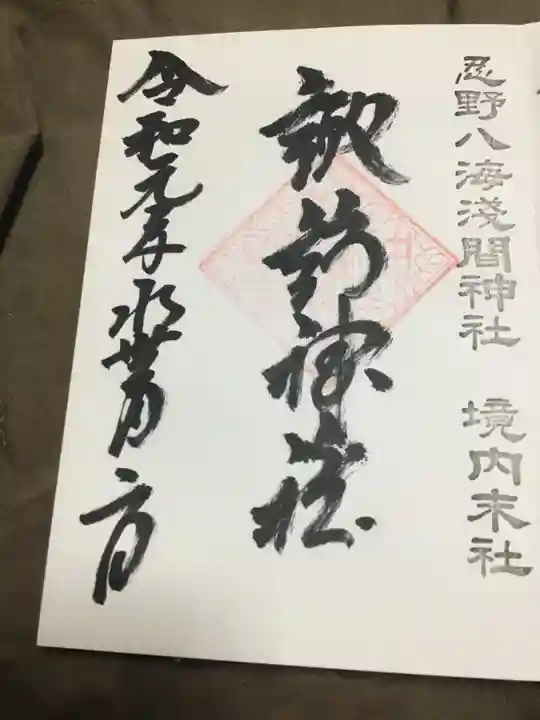 忍野八海淺間神社 境内末社
諏訪神社
令和元年水無月